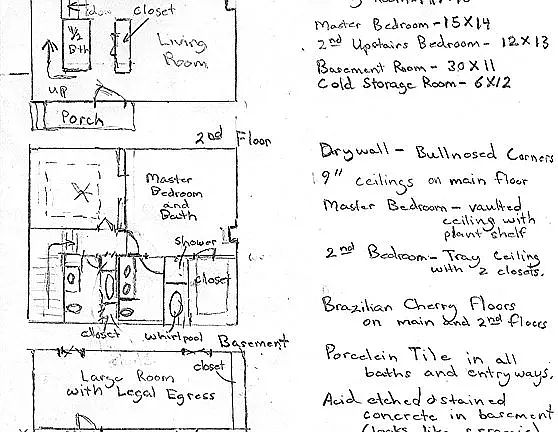 closet
1/2
Bth
Living
Room
up
Porch
2nd Floor
Master
Bedroom
and
Bath
shower
closet
closet
whirlpool
Basement
closet
Large Room
with Legal Egress
Master Bedroom - 15X14
2nd Upstairs Bedroom - 12X13
Basement Room - 30X11
Cold Storage Room - 6X12
Drywall - Bullnosed Corners
9" ceilings on main floor
Master Bedroom - vaulted
ceiling with
plant shelf
2nd Bedroom - Tray Ceiling
with 2 closets.
Brazilian Cherry Floors
on main and 2nd floors
Porcelein Tile in all
baths and entryways.
Acid etched & stained
concrete in basement
(looks like